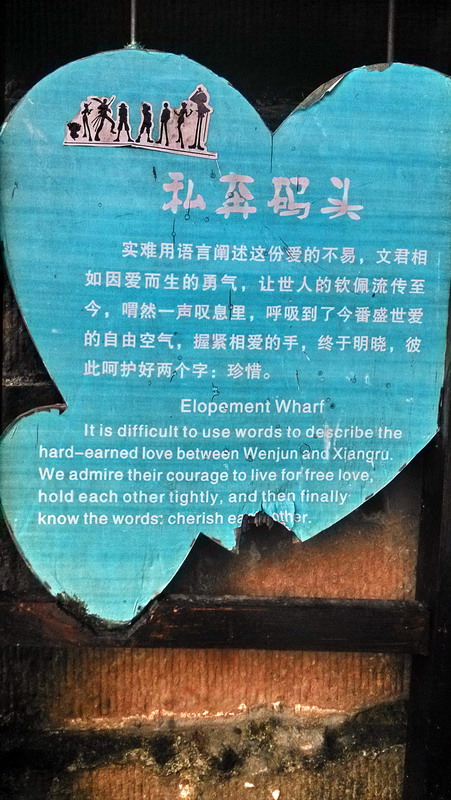 私奔码头
实难用语言阐述这份爱的不易，文君相
如因爱而生的勇气，让世人的钦佩流传至
今，喟然一声叹息里，呼吸到了今番盛世爱
的自由空气，握紧相爱的手，终于明晓，彼
此呵护好两个字：珍惜。
Elopement Wharf
It is difficult to use words to describe the
hard-earned love between Wenjun and Xiangru.
We admire their courage to live for free love,
hold each other tightly, and then finally
know the words: cherish other.